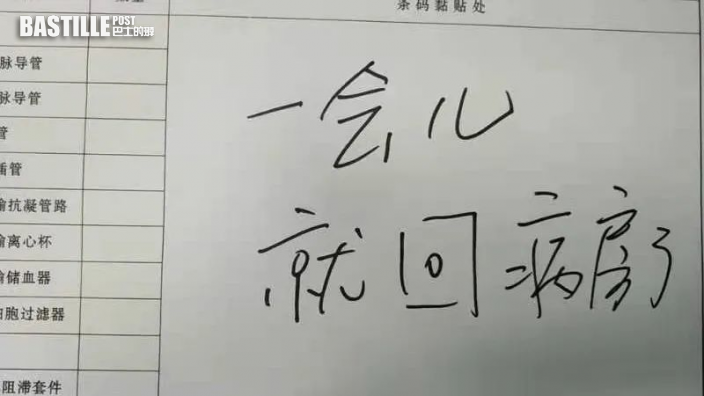 BASTILLE POST
巴士的報
条码黏贴处
脉导管
脉导管
管
插管
输抗凝管路
输离心杯
输储血器
细胞过滤器
阻滞套件
一会儿
就回病房了